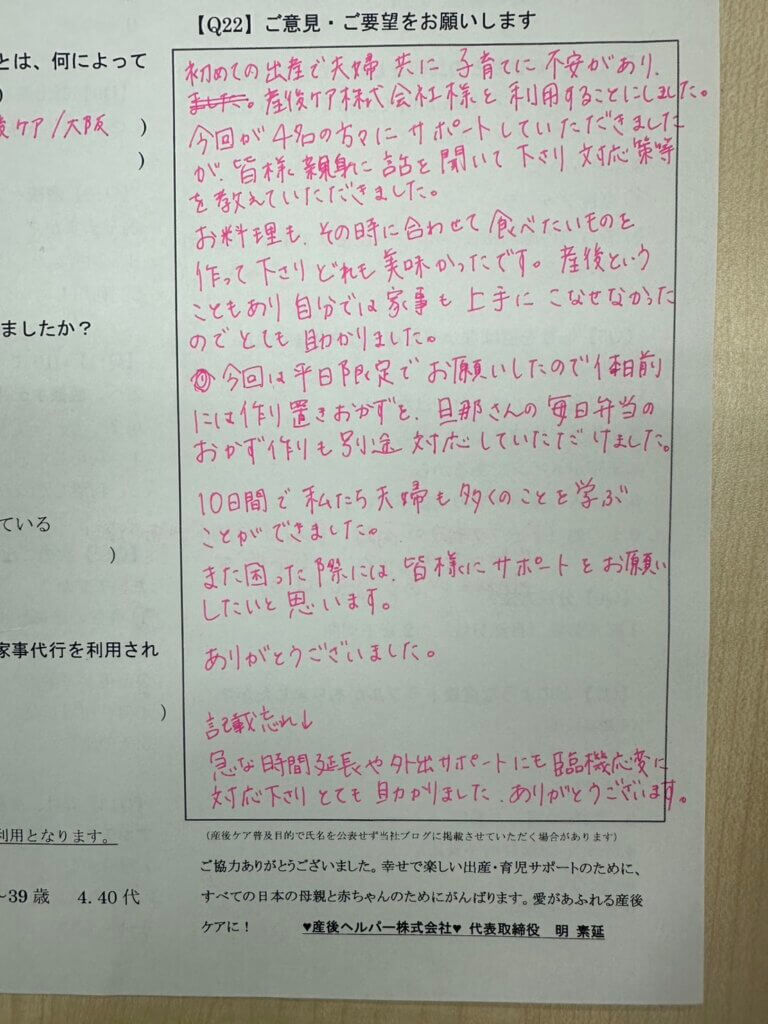 【Q22】ご意見・ご要望をお願いします
とは、何によって
)
ケア/大阪 )
)
ましたか？
ている
)
家事代行を利用され
)
利用となります。
~39歳 4.40代
初めての出産で夫婦共に子育てに不安があり、
ました。産後ケア株式会社様を利用することにしました。
今回が4名の方々にサポートしていただきました
が、皆様親身に話を聞いて下さり対応策等
を教えていただきました。
お料理も、その時に合わせて食べたいものを
作って下さりどれも美味かったです。産後という
こともあり自分では家事も上手にこなせなかった
のでとても助かりました。
今回は平日限定でお願いしたので休日前
には作り置きおかずと、旦那さんの毎日弁当の
おかず作りも別途対応していただけました。
10日間で私たち夫婦も多くのことを学ぶ
ことができました。
また困った際には、皆様にサポートをお願い
したいと思います。
ありがとうございました。
記載忘れ↓
急な時間延長や外出サポートにも臨機応変に
対応下さりとても助かりました、ありがとうございます。
(産後ケア普及目的で氏名を公表せず当社ブログに掲載させていただく場合があります)
ご協力ありがとうございました。幸せで楽しい出産・育児サポートのために、
すべての日本の母親と赤ちゃんのためにがんばります。愛があふれる産後
ケアに！ ♥産後ヘルパー株式会社♥ 代表取締役 明 素延